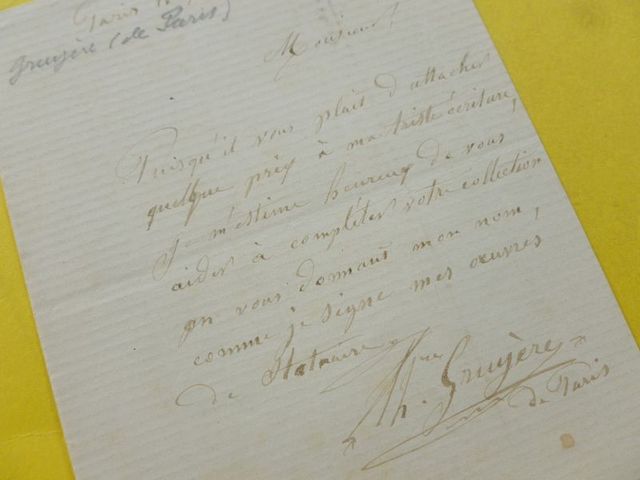 Paris
Gruyère (de Paris)
Monsieur
Puisqu'il vous plait d'attacher
quelque prix à ma triste écriture,
Je m'estime heureux de vous
aider à compléter votre collection
en vous donnant mon nom,
comme je signe mes œuvres
de Statuaire
Th. Gruyère
de Paris